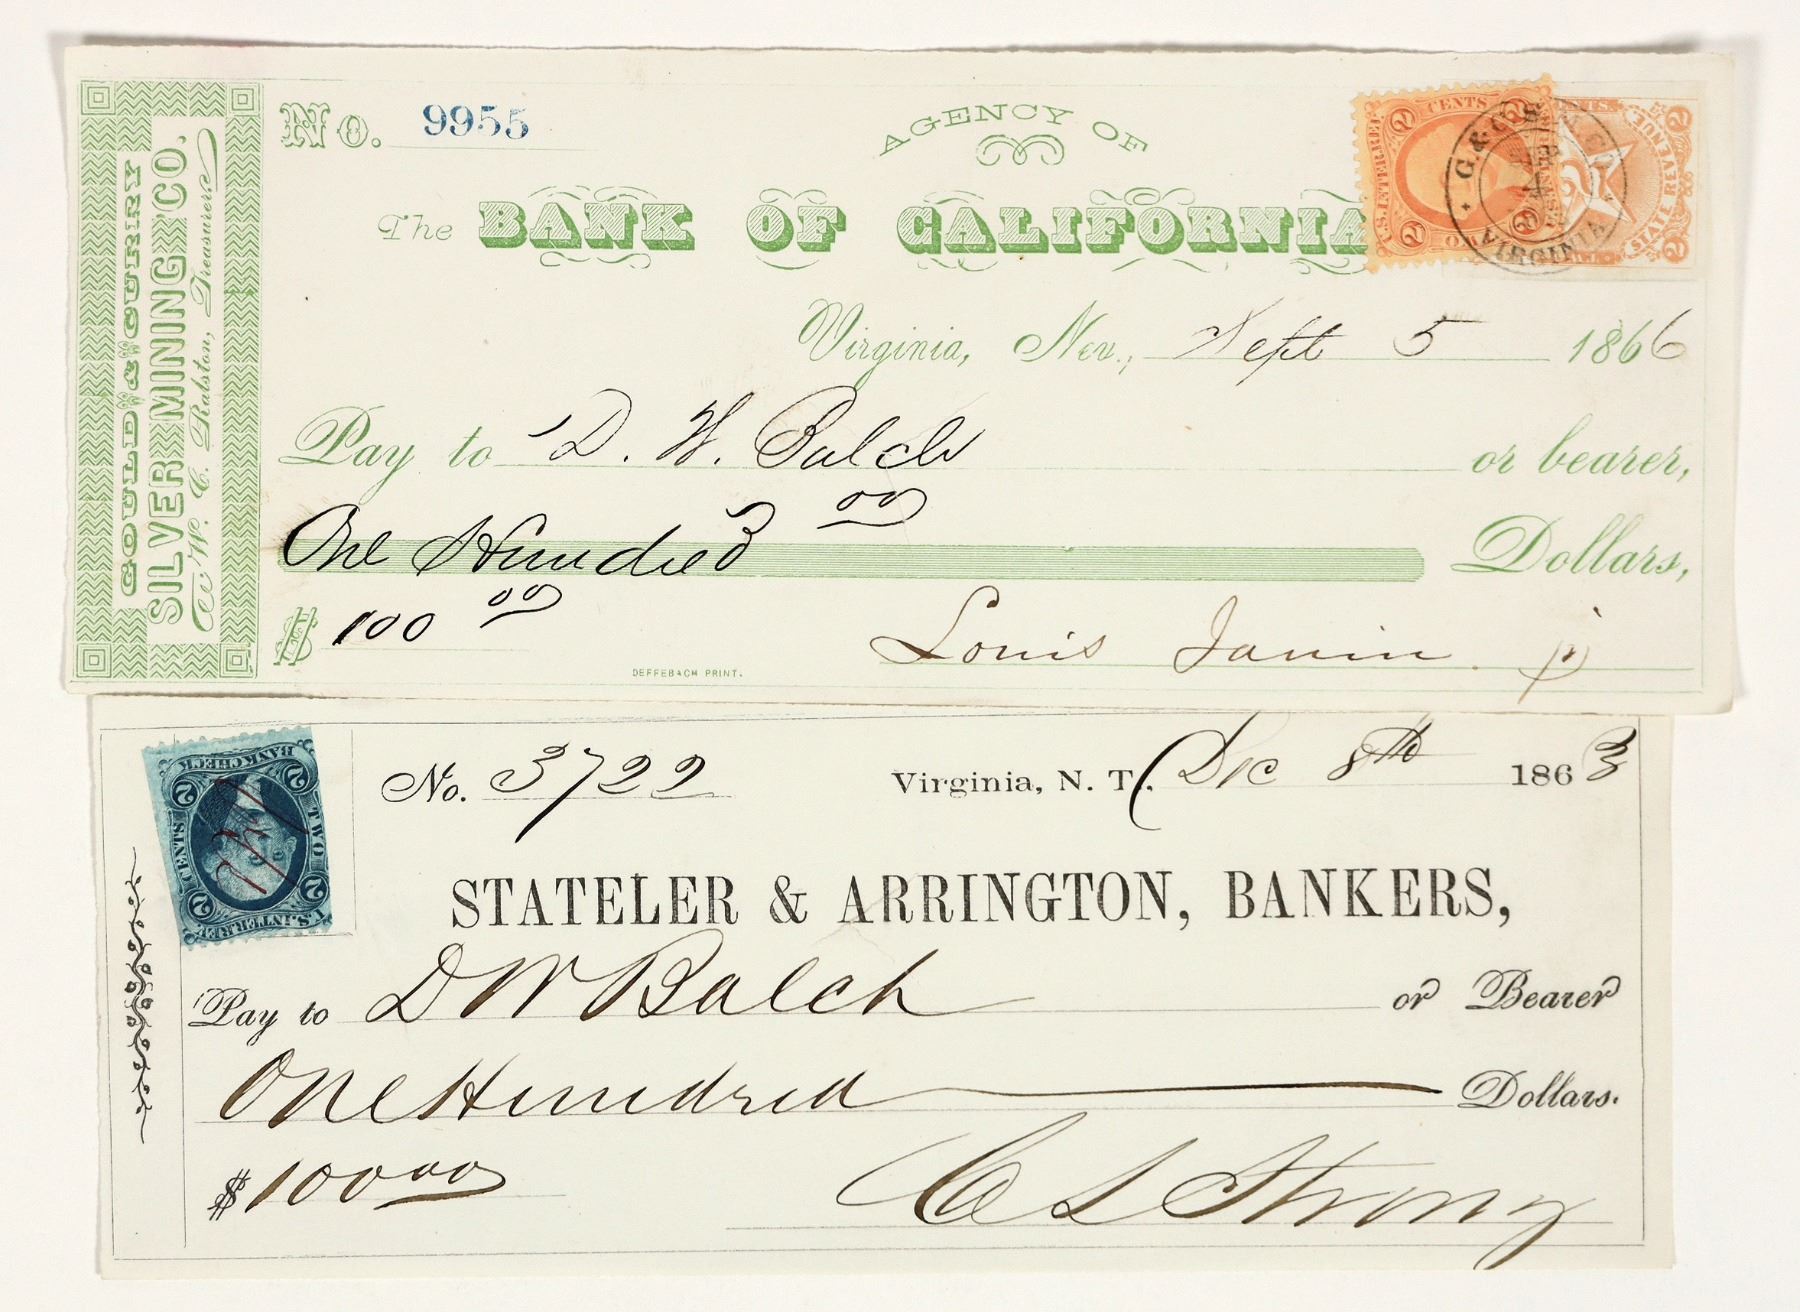 GOULD & CURRY
SILVER MINING CO.
W. C. Ralston, Treasurer
No. 9955
AGENCY OF
The BANK OF CALIFORNIA
U.S. INTER. REV.
CENTS
2
STATE REVENUE
2
G. & C. S. M. Co.
VIRGINIA
Virginia, Nev., Sept 5 1866
Pay to D. W. Balch or bearer,
One Hundred 00 Dollars,
$ 100 00
Louis Janin jr
DEFFEBACH PRINT.
BANK CHECK
TWO
CENTS
U.S. INTER. REV.
2
No. 3722
Virginia, N. T. Dec 8th 1863
STATELER & ARRINGTON, BANKERS,
Pay to D W Balch or Bearer
One Hundred Dollars.
$ 100 00
C L Strong